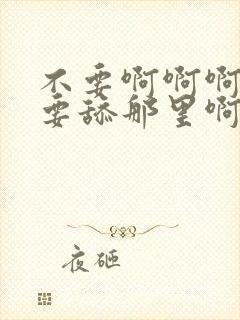 不要啊啊啊
要舔那里啊
夜砸